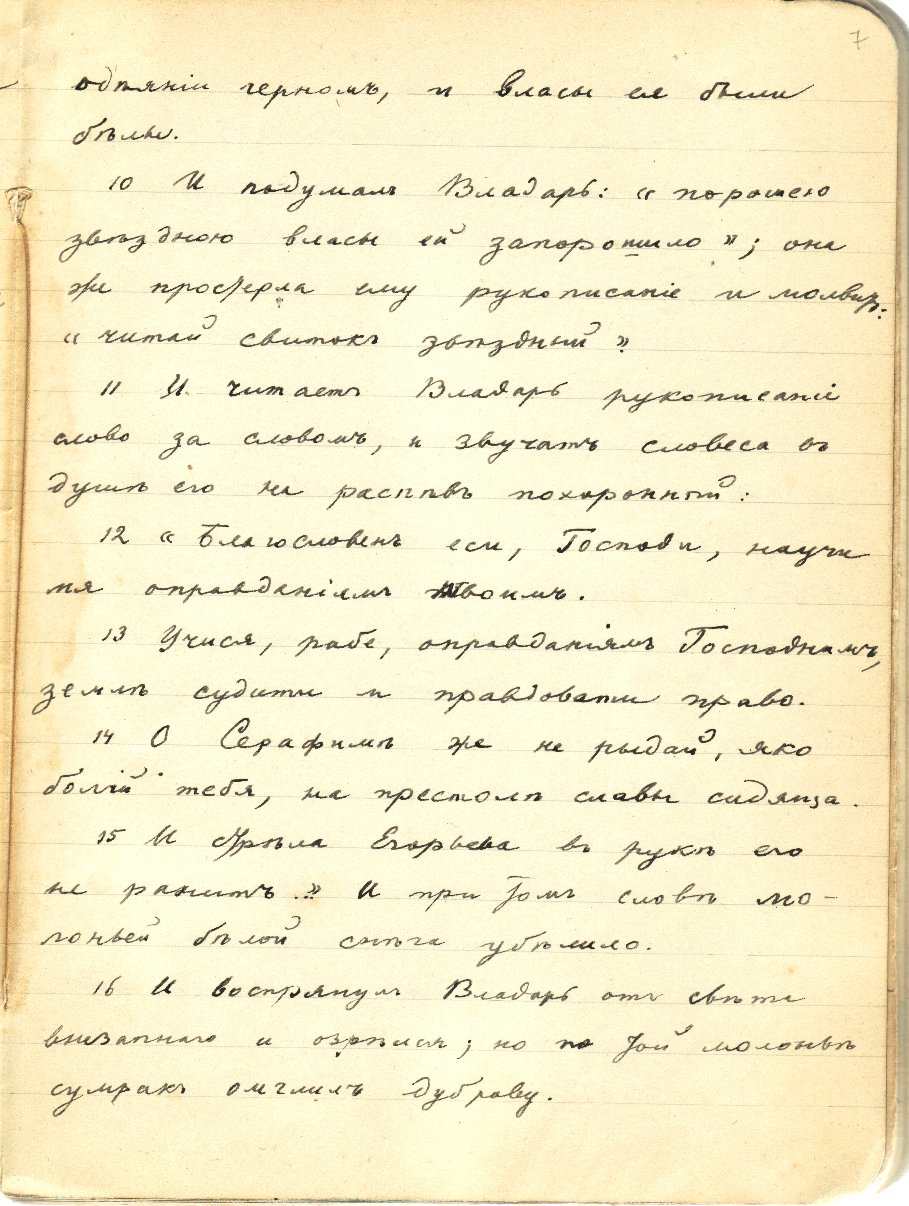 7
одѣяніи черномъ, и власы ея были
бѣлы.
10 И подумалъ Владарь: « порошею
звѣздною власы ей запорошило »; она
же простерла ему рукописаніе и молвитъ:
« читай свитокъ звѣздный »
11 И читаетъ Владарь рукописаніе
слово за словомъ, и звучатъ словеса въ
душѣ его на распѣвъ похоронный:
12 « Благословенъ еси, Господи, научи
мя оправданіямъ твоимъ.
13 Учися, рабе, оправданіямъ Господнимъ,
землѣ судити и правдовати право.
14 О Серафимѣ же не рыдай, яко
болій тебя, на престолѣ славы сидяща.
15 И стрѣла Егорьева въ рукѣ его
не ранитъ.» И при томъ словѣ мо-
лоньей бѣлой снѣга убѣлило.
16 И воспрянулъ Владарь отъ свѣта
внезапнаго и озрѣлся; но по той молоньѣ
сумракъ омглилъ дубраву.